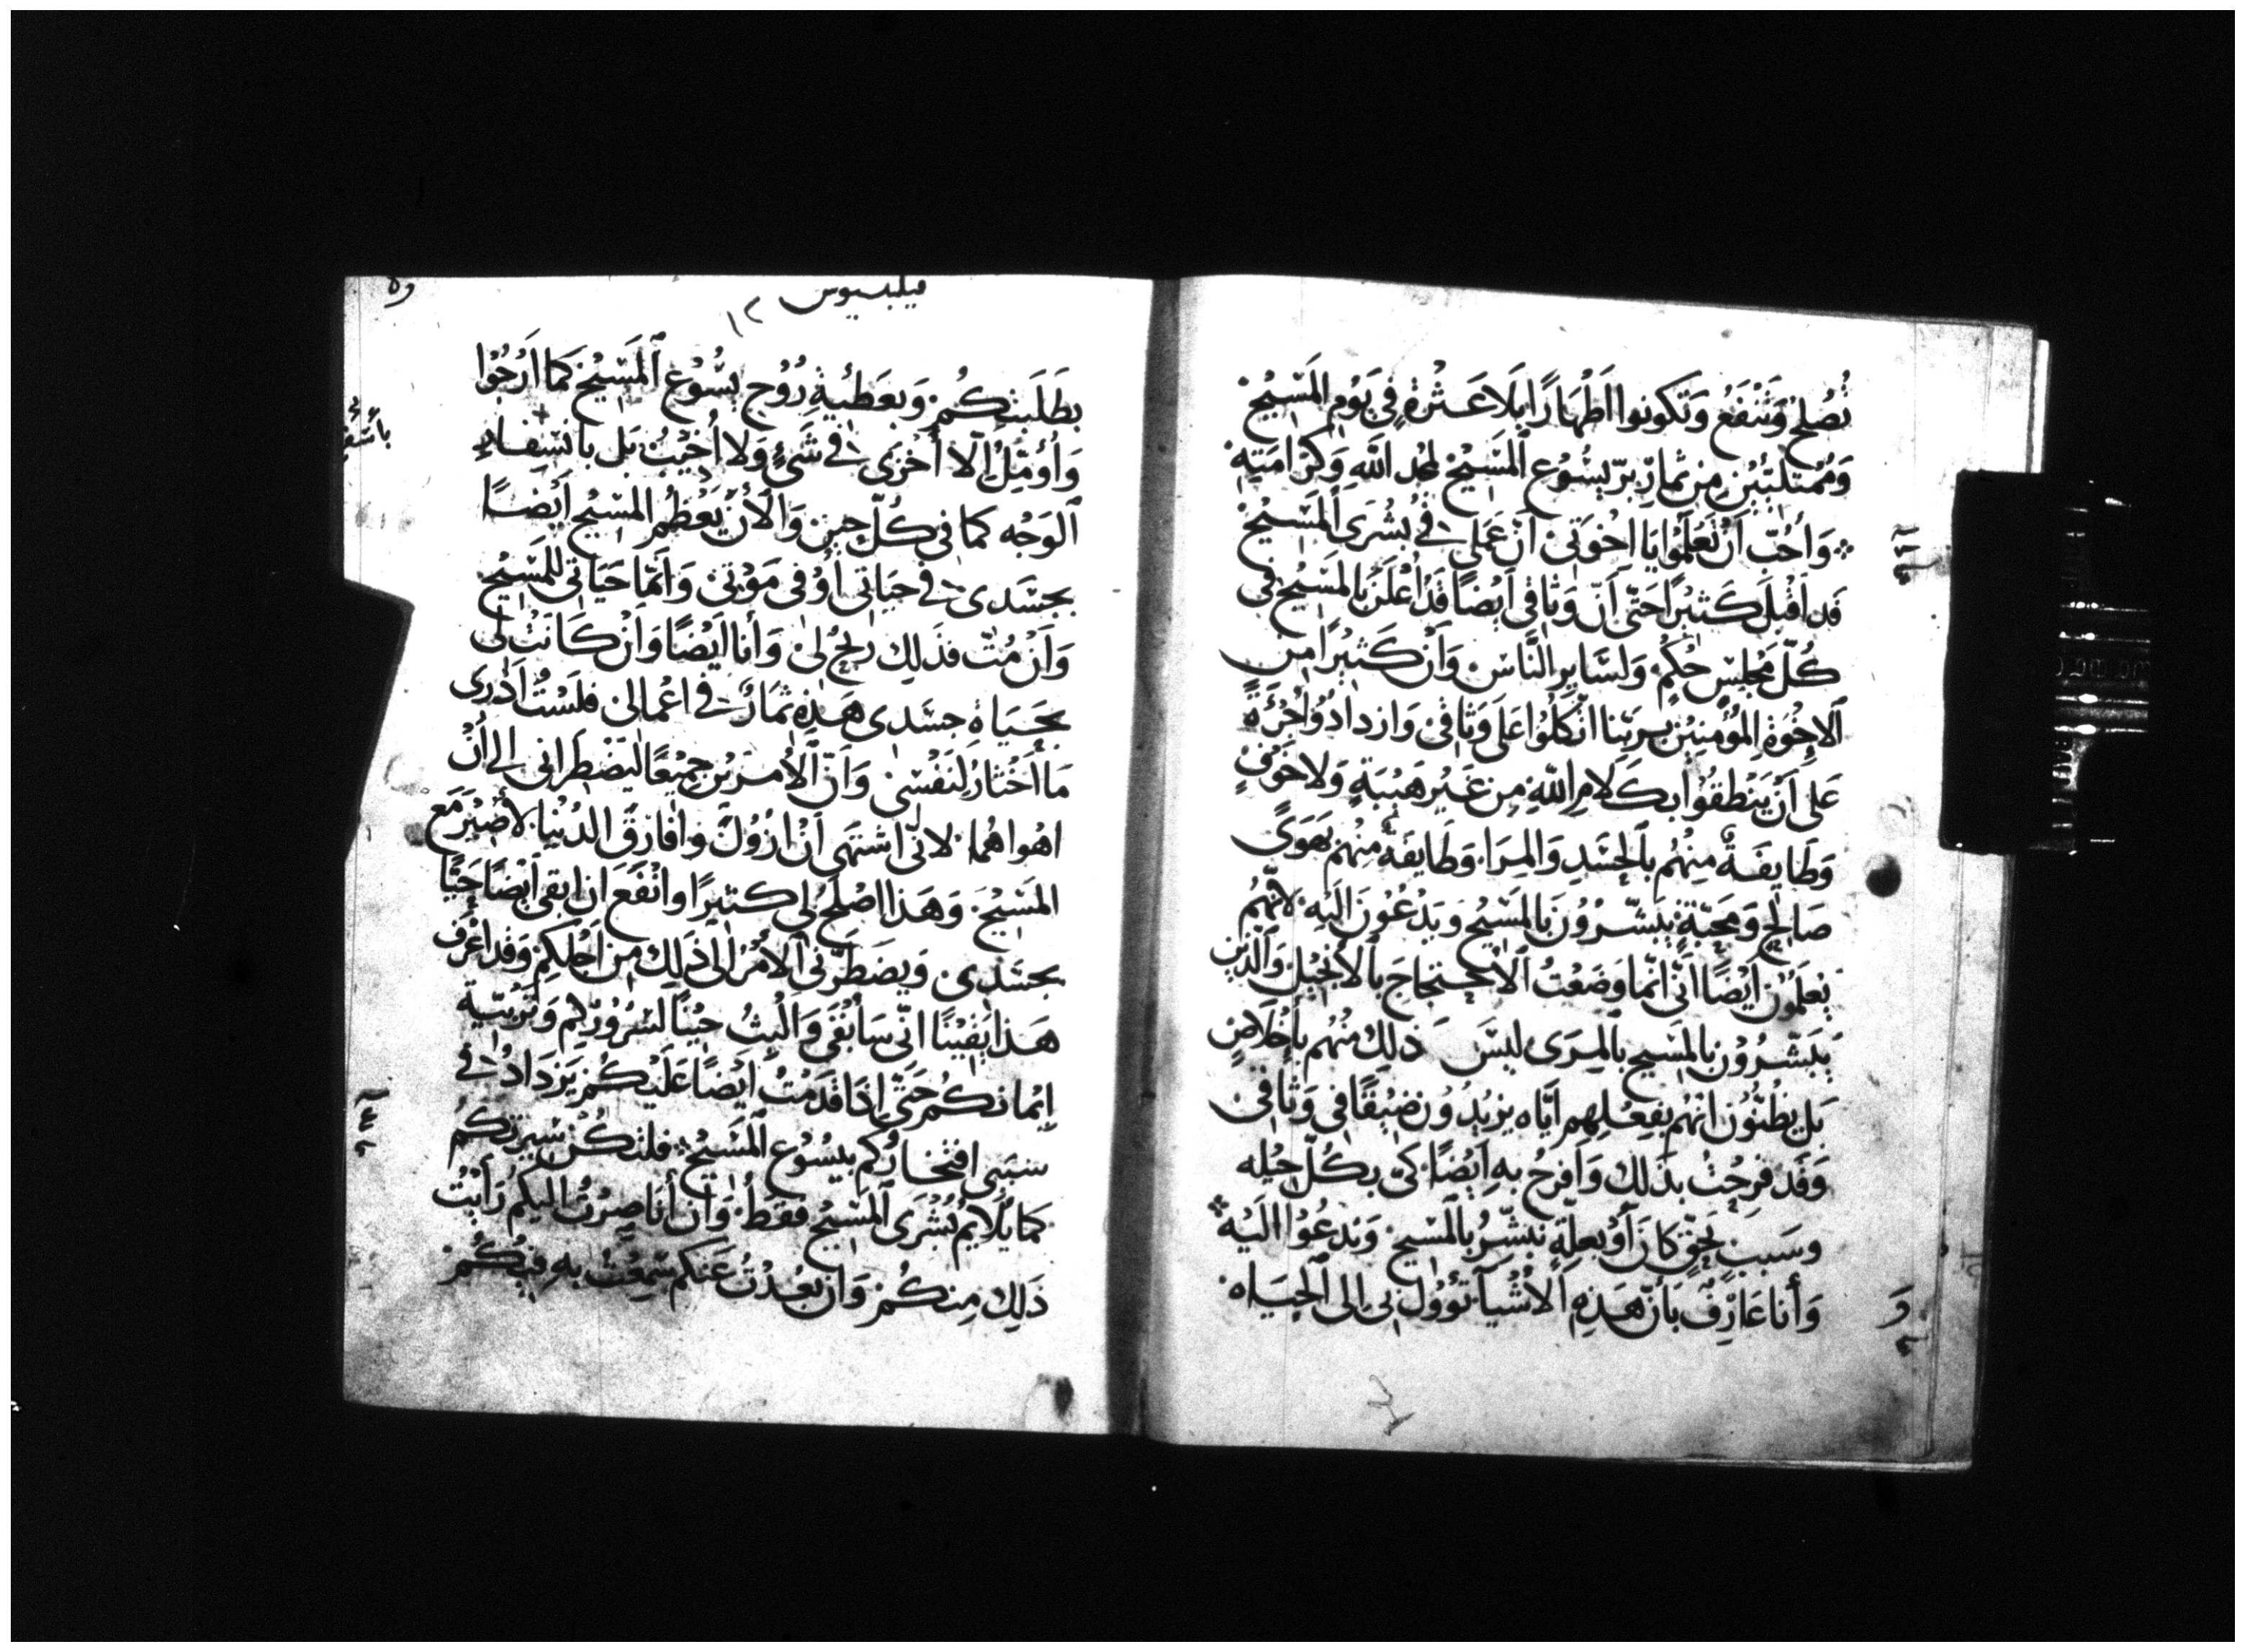 تُصْلِحُ وَتَنْفَعُ وَتَكونوا اَطْهَارًا بِلَا عَثْرَةٍ فِي يَوْمِ المَسِيْحِ
وَمُمْتَلِئِيْنَ مِن ثمارِ بِرّ يَسُوع اَلمَسِيْح لمجد اللهِ وَكرَامَتِهِ
وَأُحُبّ اَنْ تَعْلَمُوْا يَا اخْوَتِي اَنّ عَمَلِي فِي بُشْرَى اَلمَسِيْح
قَد اَقْبَلَ كَثِيْرًا حَتّى اَنّ وَثَاقِي اَيْضًا قَدْ اُعْلِنَ بالمَسِيْحِ فِي
كُلّ مَجْلِسِ حُكْمٍ وَلسَايِرِ النَّاسِ وَاَنْ كَثِيْرًا مِن
اَلاِخْوَةِ المُؤْمِنِيْنَ بِرَبِّنا اتّكَلُوْا عَلَى وَثَاقِي وَازدادُوْا جُرْءَةً
عَلى اَنْ يَنْطِقُوْا بِكَلَامِ اللهِ مِن غَيْرِ هَيْبَةٍ وَلا خَوْفٍ
وَطَايِفَةٌ مِنْهُم بالْحَسَدِ وَالمِرَا وَطَايفَةٌ مِنْهُم بِهَوًى
صَالِحٍ وَمَحَبّةٍ يُبَشّرُوْنَ بالمَسِيْحِ وَيَدْعُوْنَ اِلَيْهِ لاَنّهُمْ
يَعْلَمُوْن اَيْضًا اَنّي انّما وَضَعْتُ اَلاحتجاجَ بالاَنْجِيْل وَالّذِين
يُبَشّرُوْن بالمَسِيحِ بالمِرَى لَيْسَ ذلِكَ مِنْهُم بِاِخْلَاصٍ
بَل يظُنُّوْن انّهُم بفِعْلِهم ايّاه يزيدُوْن ضِيْقًا فِي وَثَاقِي
وَقَد فَرِحْتُ بِذَلك وَاَفرحُ بهِ اَيْضًا كَي بِكُلّ حِيْله
وسَبَب بحَقٍّ كانَ اَوْ بعِلّةٍ نُبَشّرُ بالمَسِيْحِ وَندعُوْا الَيْه
وَأَنا عَارِفٌ بَأنّ هَذِهِ اَلأشْيَآ تَؤُوْل بي الى اَلحَيَاه
فيلبسيوس
١٢
بطَلِبَتِكُم وَبعَطيّةِ رُوْح يَسُوْع اَلمَسِيْح كَمَا اَرْجُوْا
وَاُؤَمّلُ اَلّا أُخْزَى فِي شَيْءٍ وَلا اُخيّبُ بَل بانسفاءِ
اَلوَجْه كما في كُلّ حِين وَالْأن يُعَظّم المَسِيْح اَيْضًا
بِجَسَدي فِي حيَاتي اَوْ في مَوْتي وَانّما حَيَاتي لِلمَسِيْحِ
وَاَنْ مُتّ فذَلِك رِبْحٌ لي وَأَنا اَيْضًا وَاَنْ كَانَتْ لى
بحَيَاةِ جسَدي هَذِهِ ثمَارٌ في اعْمالى فلَسْتُ اَدْرى
مَا أَخْتَارُ لِنَفْسِي وَاَنّ اَلأمرَيْنِ جمِيْعًا ليَضْطِرّاني الى أنْ
اهْواهُما لانّى اشْتهي اَنْ ازُوْلَ وَاُفَارِقَ الدُنْيَا لأصِيْرَ مَع
المَسِيْح وَهَذا اصْلَحُ لي كثيرًا وانْفَع ان ابقى اَيْضًا حَيًّا
بجسَدِى وَيضطَرّني اَلأمرُ الى ذَلِكَ مِن اَجْلِكم وَقد اعْرِف
هَذا يَقِيْنًا انّي سَاَبْقَى وَاَلْبثُ حِيْنًا لسُرُوْرِكم وَتَرْبيَةِ
اِيْمَانكُم حَتّى اِذَا قَدمْتُ اَيْضًا عَلَيْكُم يَزدَادُ فِي
سَبَبى افتخارُكم بِيَسُوْع اَلمَسِيْح فلتكُنْ سِيْرتكُم
كما يُلايمُ بُشْرَى اَلمَسِيْح فقَطْ وَاَن أَنا صِرْتُ اليكم رَأيْتُ
ذَلِكَ مِنكُم وَاَن بَعُدْتُ عَنكم سَمِعْتُ بِهِ فيكُم